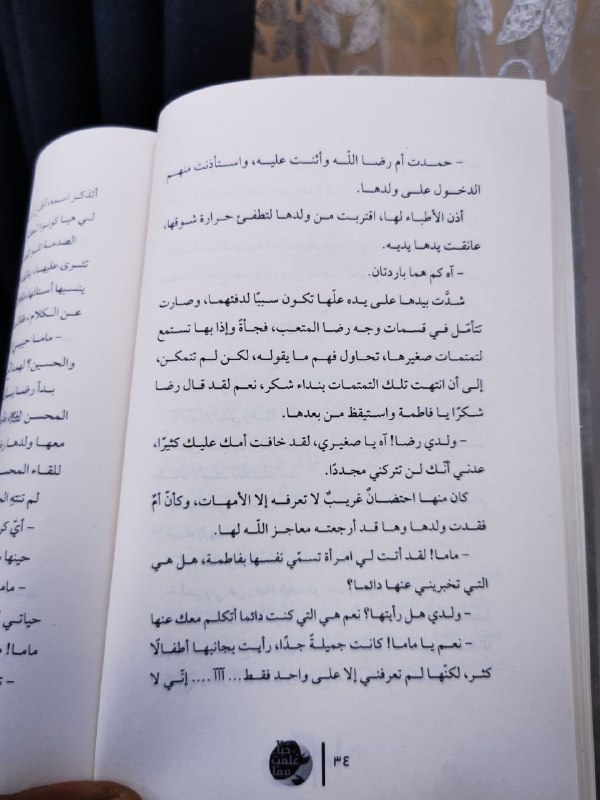 – حمدت أم رضا اللّه وأثنت عليه، واستأذنت منهم
الدخول على ولدها.
أذن الأطباء لها، اقتربت من ولدها لتطفئ حرارة شوقها،
عانقت يدها يديه.
– آه كم هما باردتان.
شدَّت بيدها على يده علّها تكون سببًا لدفئهما، وصارت
تتأمّل في قسمات وجه رضا المتعب، فجأةً وإذا بها تستمع
لتمتمات صغيرها، تحاول فهم ما يقوله، لكن لم تتمكن،
إلى أن انتهت تلك التمتمات بنداء شكر، نعم لقد قال رضا
شكرًا يا فاطمة واستيقظ من بعدها.
– ولدي رضا! آه يا صغيري، لقد خافت أمك عليك كثيرًا،
عدني أنّك لن تتركني مجددًا.
كان منها احتضانٌ غريبٌ لا تعرفه إلا الأمهات، وكأنّ أمٌ
فقدت ولدها وها قد أرجعته معاجز اللّه لها.
– ماما! لقد أتت لي امرأة تسمّي نفسها بفاطمة، هل هي
التي تخبريني عنها دائما؟
– ولدي هل رأيتها؟ نعم هي التي كنت دائما أتكلم معك عنها
– نعم يا ماما! كانت جميلةً جدًا، رأيت بجانبها أطفالًا
كثر، لكنّها لم تعرفني إلا على واحد فقط... آآآ .... إنّي لا
٣٤
أتذكر اسمه
لي هيا
الصدمة
تترى عليها،
ينسيها
عن الكلام،
– ماما
والحسين؟
بدأ رضا
المحسن
معها ولدها
للقاء
لم تنته
– أيّ
حينها
– ماما
حياتي
ماما!